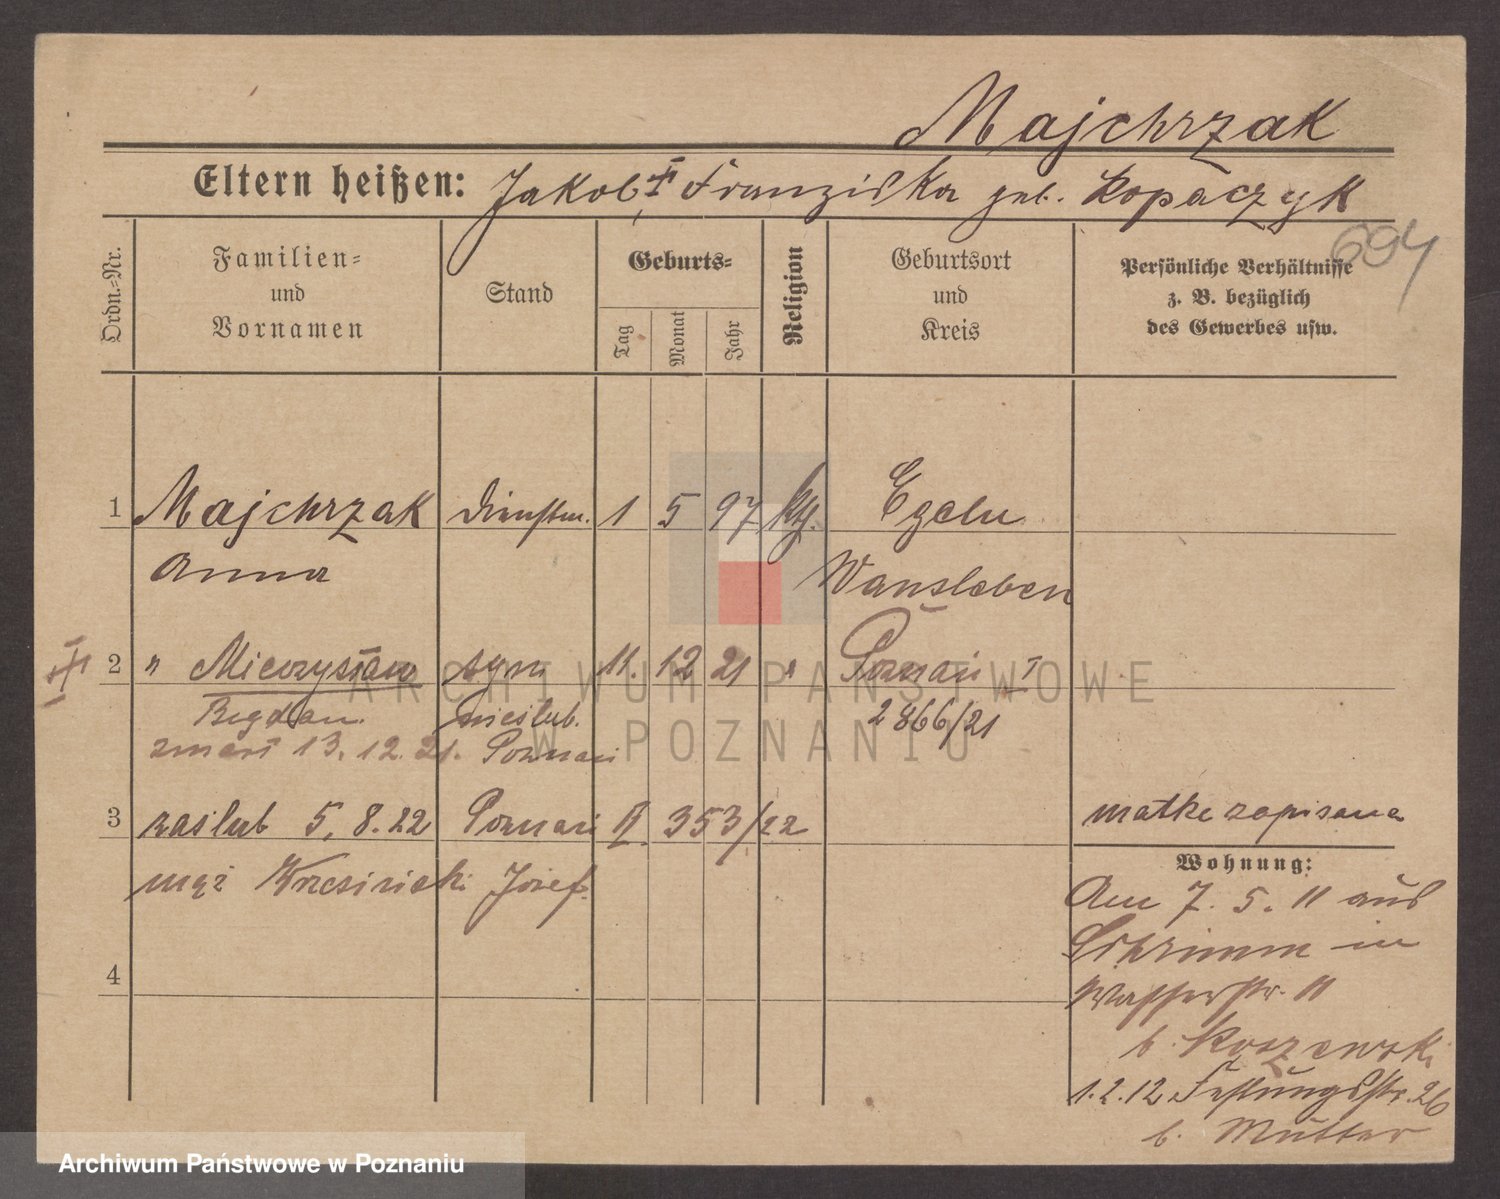 Majchrzak
Eltern heißen: Jakob ‡ Franziska geb. Kopaczyk
694
Ordn.-Nr.
Familien-
und
Vornamen
Stand
Geburts-
Tag
Monat
Jahr
Religion
Geburtsort
und
Kreis
Persönliche Verhältnisse
z. B. bezüglich
des Gewerbes usw.
1 Majchrzak Dienstm. 1 5 97 kth. Egeln
Anna Wansleben
‡ 2 " Mieczysław syn 11. 12 21 " Poznań I
Bogdan nieślub. 2866/21
zmarł 13. 12. 21. Poznań
3 zaślub 5. 8. 22 Poznań 353/22 matke zapisana
mąż Wrzesiński Józef.
Wohnung:
Am 7. 5. 11 aus
Schrimm in
Wasserstr. 11
b. Koszewski
4
1. 2. 12 Festungsstr. 26
b. Mutter
ARCHIWUM PAŃSTWOWE
W POZNANIU
Archiwum Państwowe w Poznaniu